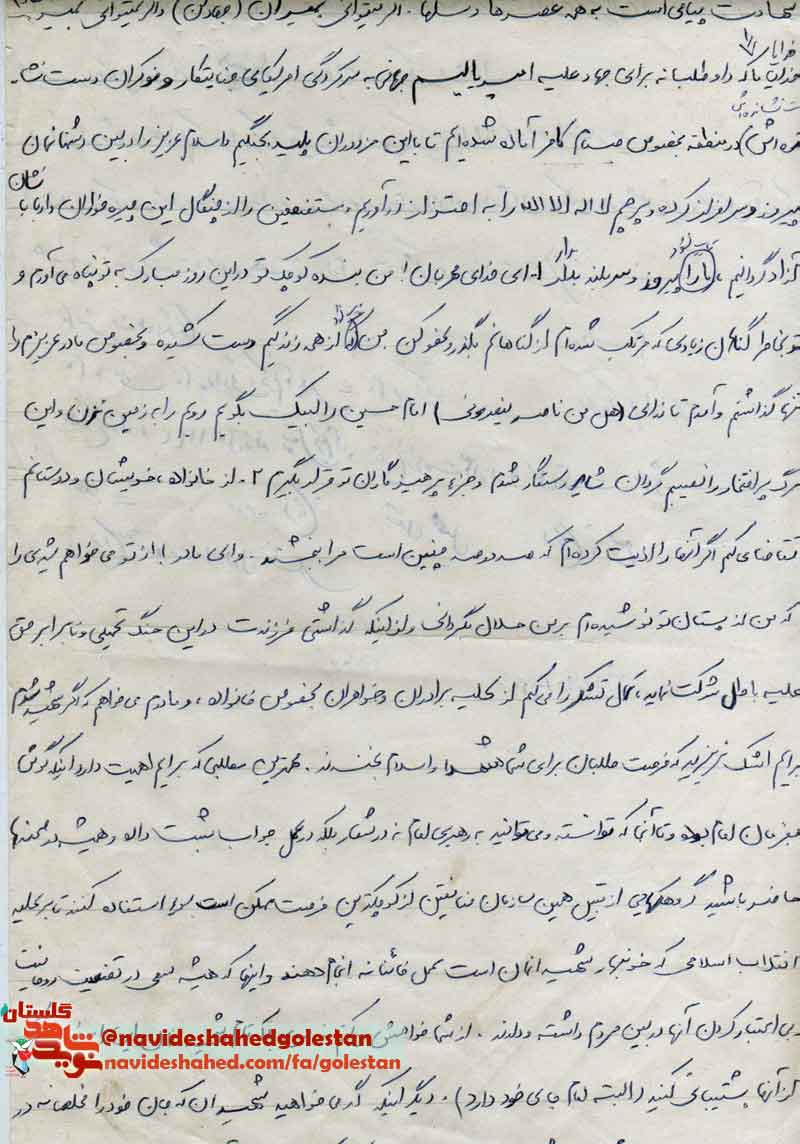 شهادت پیامی است به همه عصرها و نسلها. اگر میتوانی بمیران (جهاد کن) و اگر نمیتوانی بمیر
خدایا
خدایا ما که داوطلبانه برای جهاد علیه امپریالیسم جهانی به سرکردگی امریکای جنایتکار و نوکران دست نشا-
نده اش) در منطقه بخصوص صدام کافر آماده شده ایم تا با این مزدوران پلید بجنگیم و اسلام عزیز را در بین دشمنانمان
پیروز و سرافراز کرده و پرچم لا اله الا الله را به اهتزاز در آوریم و مستضعفین را از چنگال این جیره خواران و اربابا
نشان
آزاد گردانیم، ما را پیروز و سر بلند بدار ۱- ای خدای مهربان! من بنده کوچک تو در این روز مبارک به تو پناه می آورم و
تو نیز مرا گناهان زیادی که مرتکب شده ام از گناهانم بگذر و عفو کن. من از همه زندگیم دست کشیده و بخصوص مادر عزیزم را
تنها گذاشتم و آمدم تا ندای (هل من ناصر ینصرونی) امام حسین را لبیک بگویم رویم را به زمین نزن و این
مرگ پر افتخار را نصیبم گردان شاید رستگار شدم و جزء پرهیزگاران تو قرار بگیرم ۲- از خانواده، خویشان و دوستانم
تقاضا می کنم اگر آنها را اذیت کرده ام که صد در صد چنین است مرا ببخشند. و ای مادر! از تو می خواهم شیری را
که من از پستان تو نوشیده ام بر من حلال بگردانی و از اینکه گذاشتی فرزندت در این جنگ تحمیلی و نابرابر حق
علیه باطل شرکت نماید، کمال تشکر را می کنم از کلیه برادران و خواهران بخصوص خانواده، و مادرم می خواهم که اگر شهید شدم
برایم اشک نریزید که فرصت طلبان برای شما و اسلام بخندند. مهمترین مطلبی که برایم اهمیت دارد اینکه گوش
بفرمان امام بوده و تا آنجا که توانسته و می توانید به رهبری امام نه در شعار بلکه در عمل جواب مثبت داده و همیشه در صحنه
حاضر باشید گروهکهایی از قبیل همین سازمان منافقین از کوچکترین فرصت ممکن است سوء استفاده کنند تا بر علیه
انقلاب اسلامی که خونبهای شهیدانمان است عمل خائنانه انجام دهند و اینها که همیشه سعی در تضعیف روحانیت
و بی اعتبار کردن آنها در بین مردم داشته و دارند. از شما خواهش
از آنها پشتیبانی کنید (البته امام جای خود دارد). دیگر اینکه اگر می خواهید شهیدان که جان خود را مخلصانه در
گلستان
نوید شاهد
@navideshahedgolestan
navideshahed.com/fa/golestan